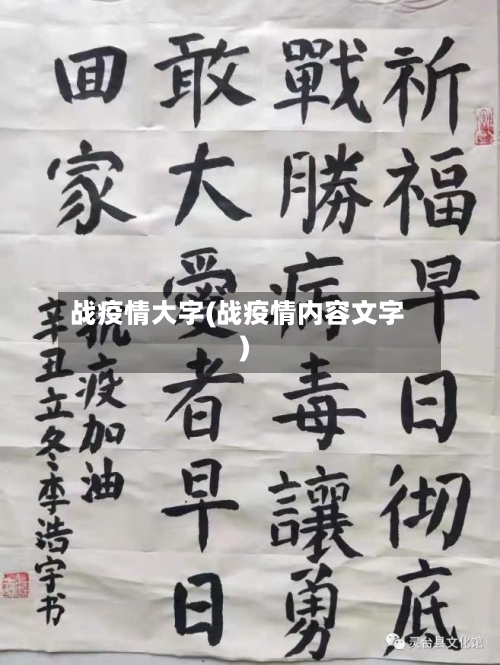 祈福早日彻底
戰勝病毒讓勇
敢大愛者早日
囬家
抗疫加油
辛丑立冬李浩宇书
战疫情大字(战疫情内容文字
)
灵台县文化馆